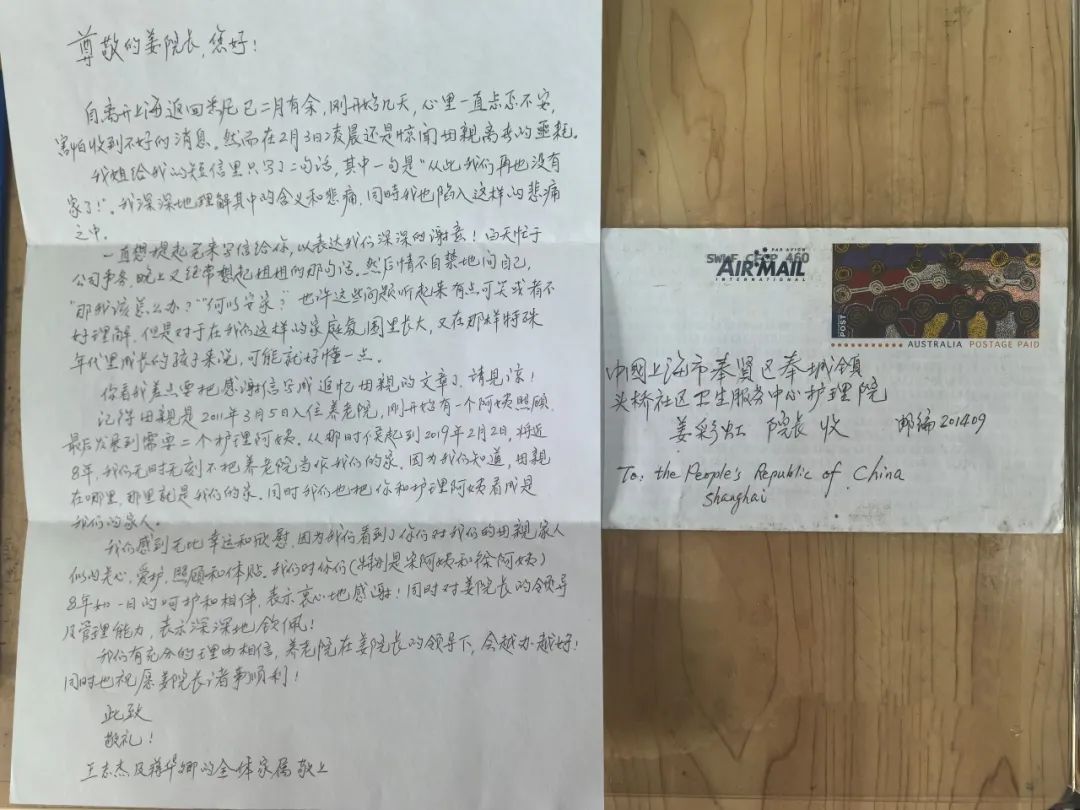 尊敬的姜院长,您好!
自离开上海返回悉尼已二月有余,刚开始几天,心里一直忐忑不安,
害怕收到不好的消息。然而在2月3日凌晨还是惊闻母親离去的噩耗。
我姐给我的短信里只写了二句话,其中一句是"从此我们再也没有
家了!"。我深深地理解其中的含义和悲痛,同時我也陷入这样的悲痛
之中。
一直想提起笔来写信给你,以表达我们深深的谢意!白天忙于
公司事务,晚上又经常想起姐姐的那句话。然后情不自禁地问自己,
"那我该怎么办?""何以安家?"也许这些问题听起来有点可笑或者不
好理解,但是对于在我们这样的家庭氛围里长大,又在那样特殊
年代里成长的孩子来说,可能就好懂一点。
你看我差点要把感谢信写成追忆母親的文章了,请見凉!
记得母親是2011年3月5日入住养老院,刚开始有一个阿姨照顾,
最后发展到需要二个护理阿姨。从那时候起到2019年2月2日,将近
8年,我们无时无刻不把养老院当作我们的家。因为我们知道,母親
在哪里,那里就是我们的家。同时我们也把你和护理阿姨看成是
我们的家人。
我们感到无比幸运和欣慰,因为我们看到了你们对我们的母親家人
似的关心,爱护,照顾和体贴。我们对你们(特别是宋阿姨和徐阿姨)
8年如一日的呵护和相伴,表示衷心地感谢!同时对姜院长的领导
及管理能力,表示深深地钦佩!
我们有充分的理由相信,养老院在姜院长的领导下,会越办越好!
同时也祝愿姜院长诸事顺利!
此致
敬礼!
王志杰及蒋华卿的全体家属敬上
PAR AVION
SWLF CFCP 460
AIR MAIL
INTERNATIONAL
POST
AUSTRALIA POSTAGE PAID
中國上海市奉贤区奉城镇
头桥社区卫生服务中心护理院
姜彩虹 院长 收 邮编201409
To: the People's Republic of China
Shanghai